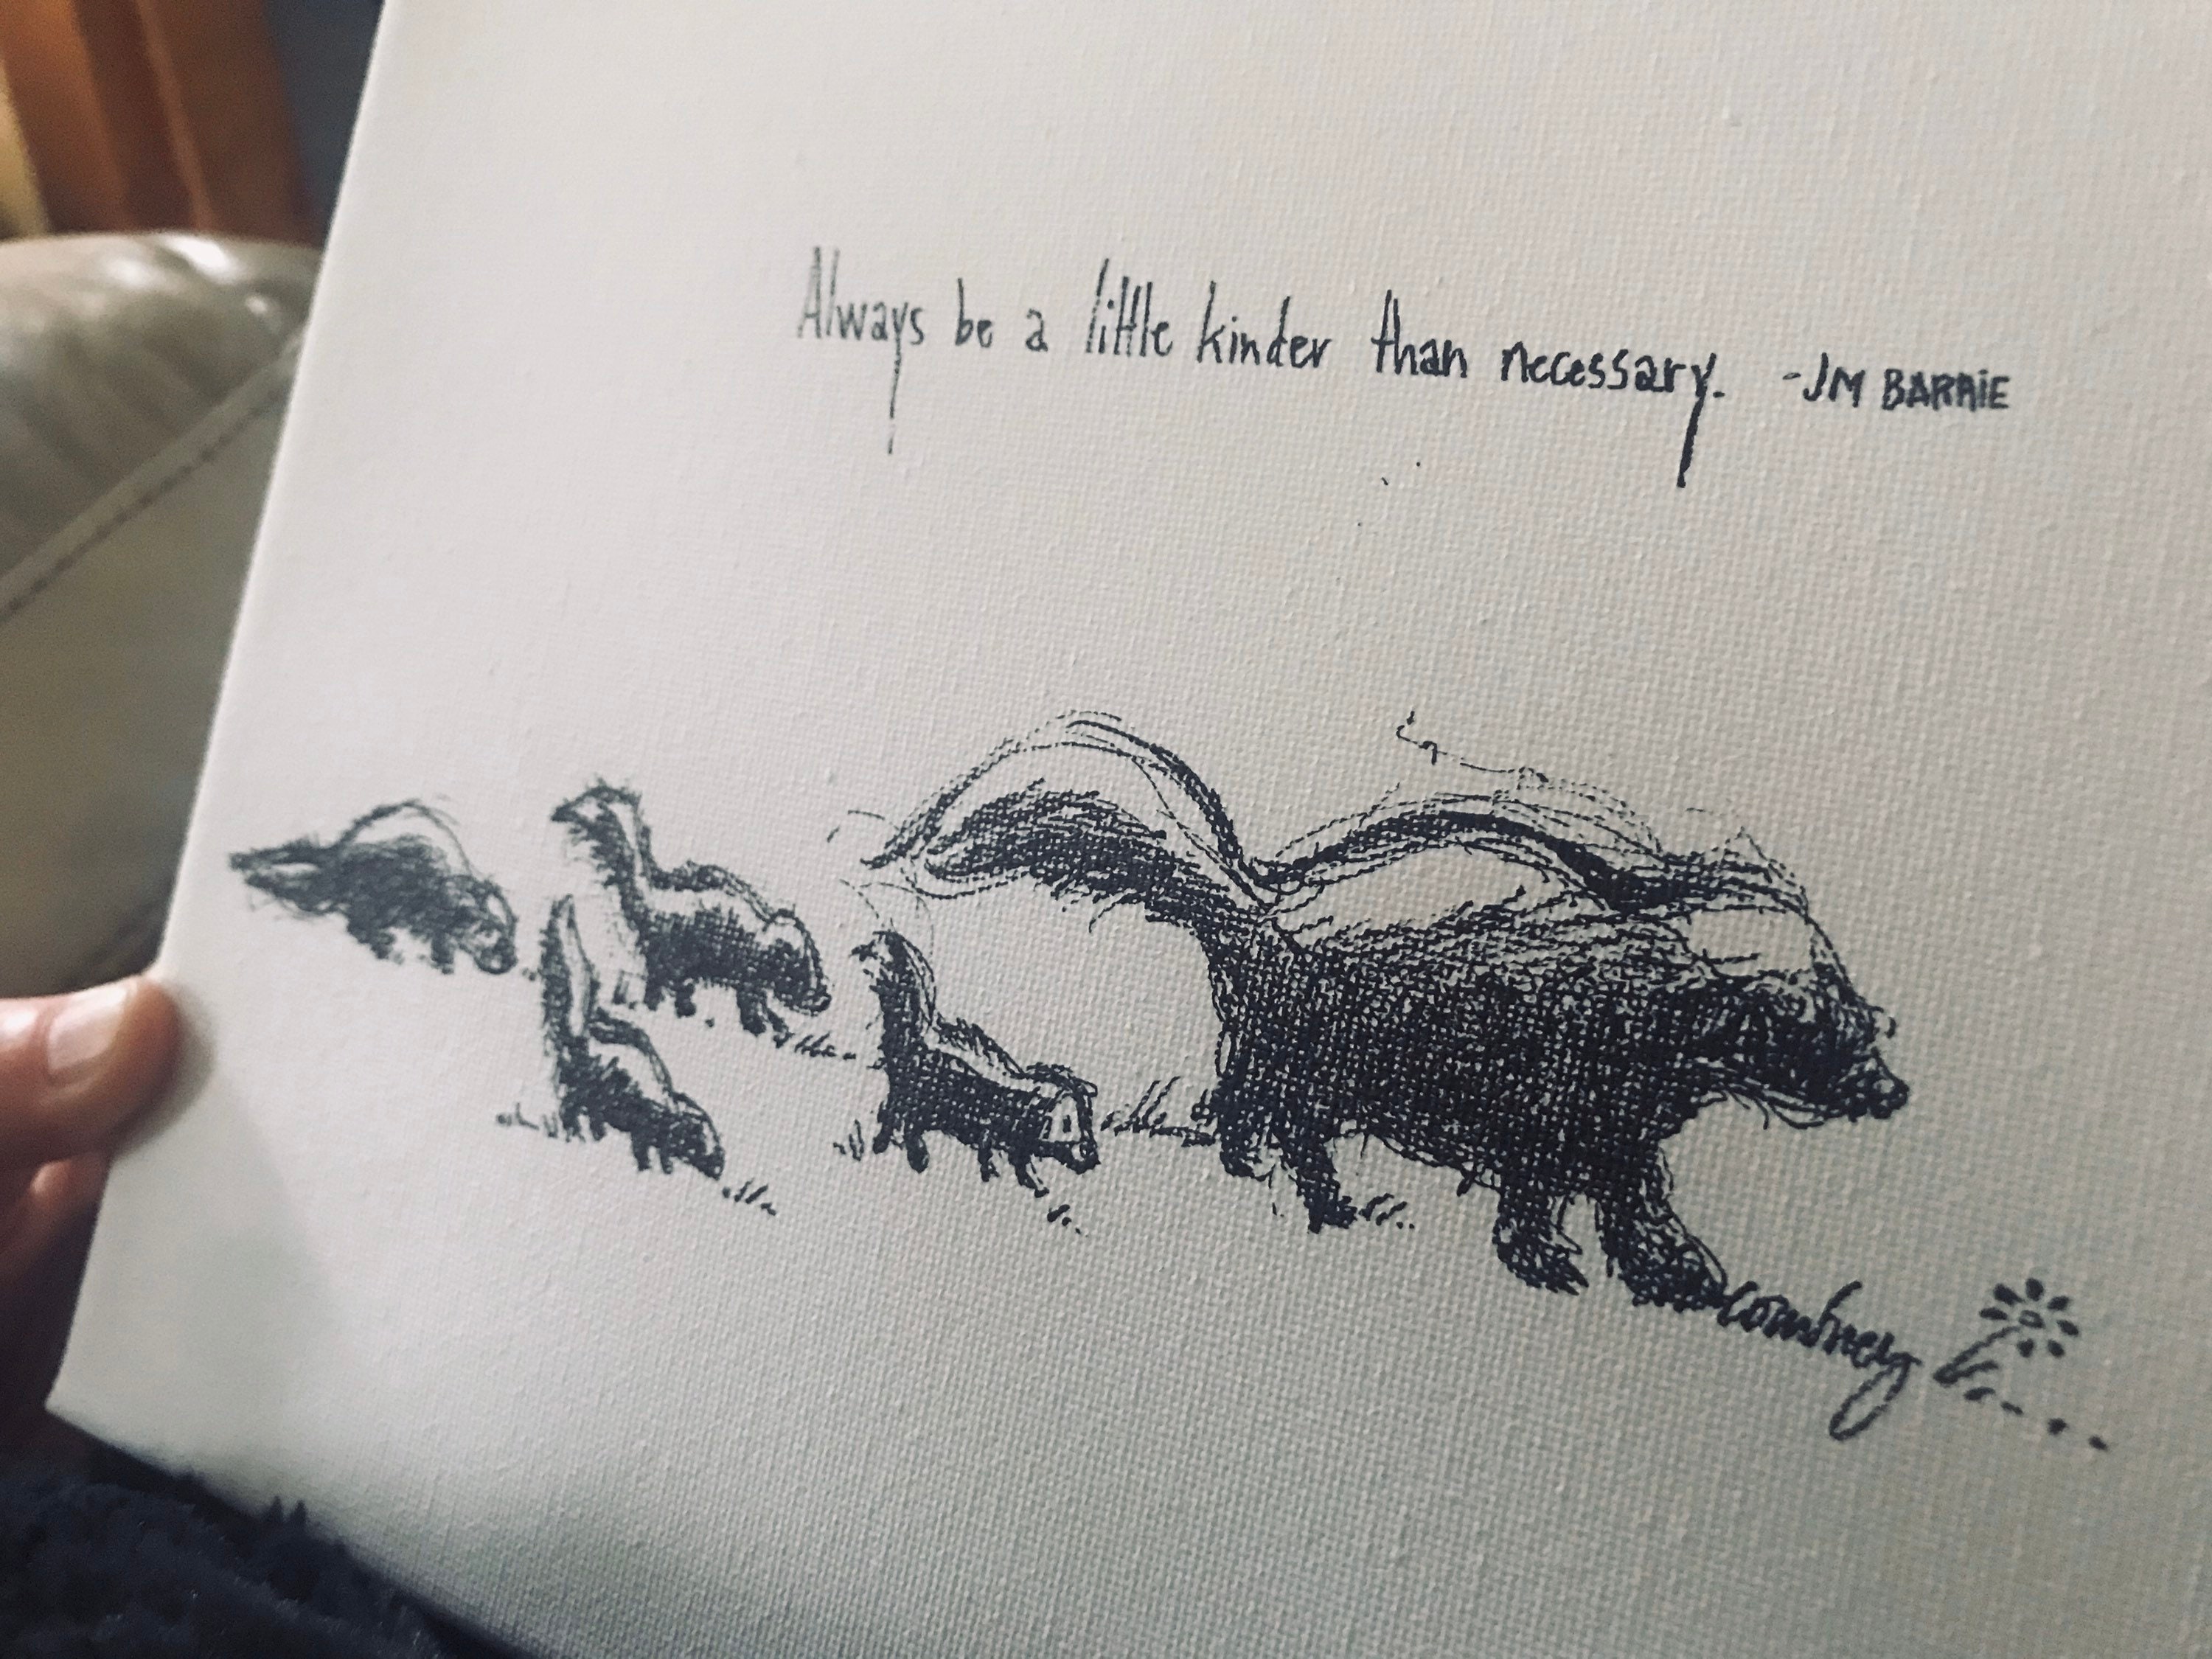 Always be a little kinder than necessary. -JM BARRIE